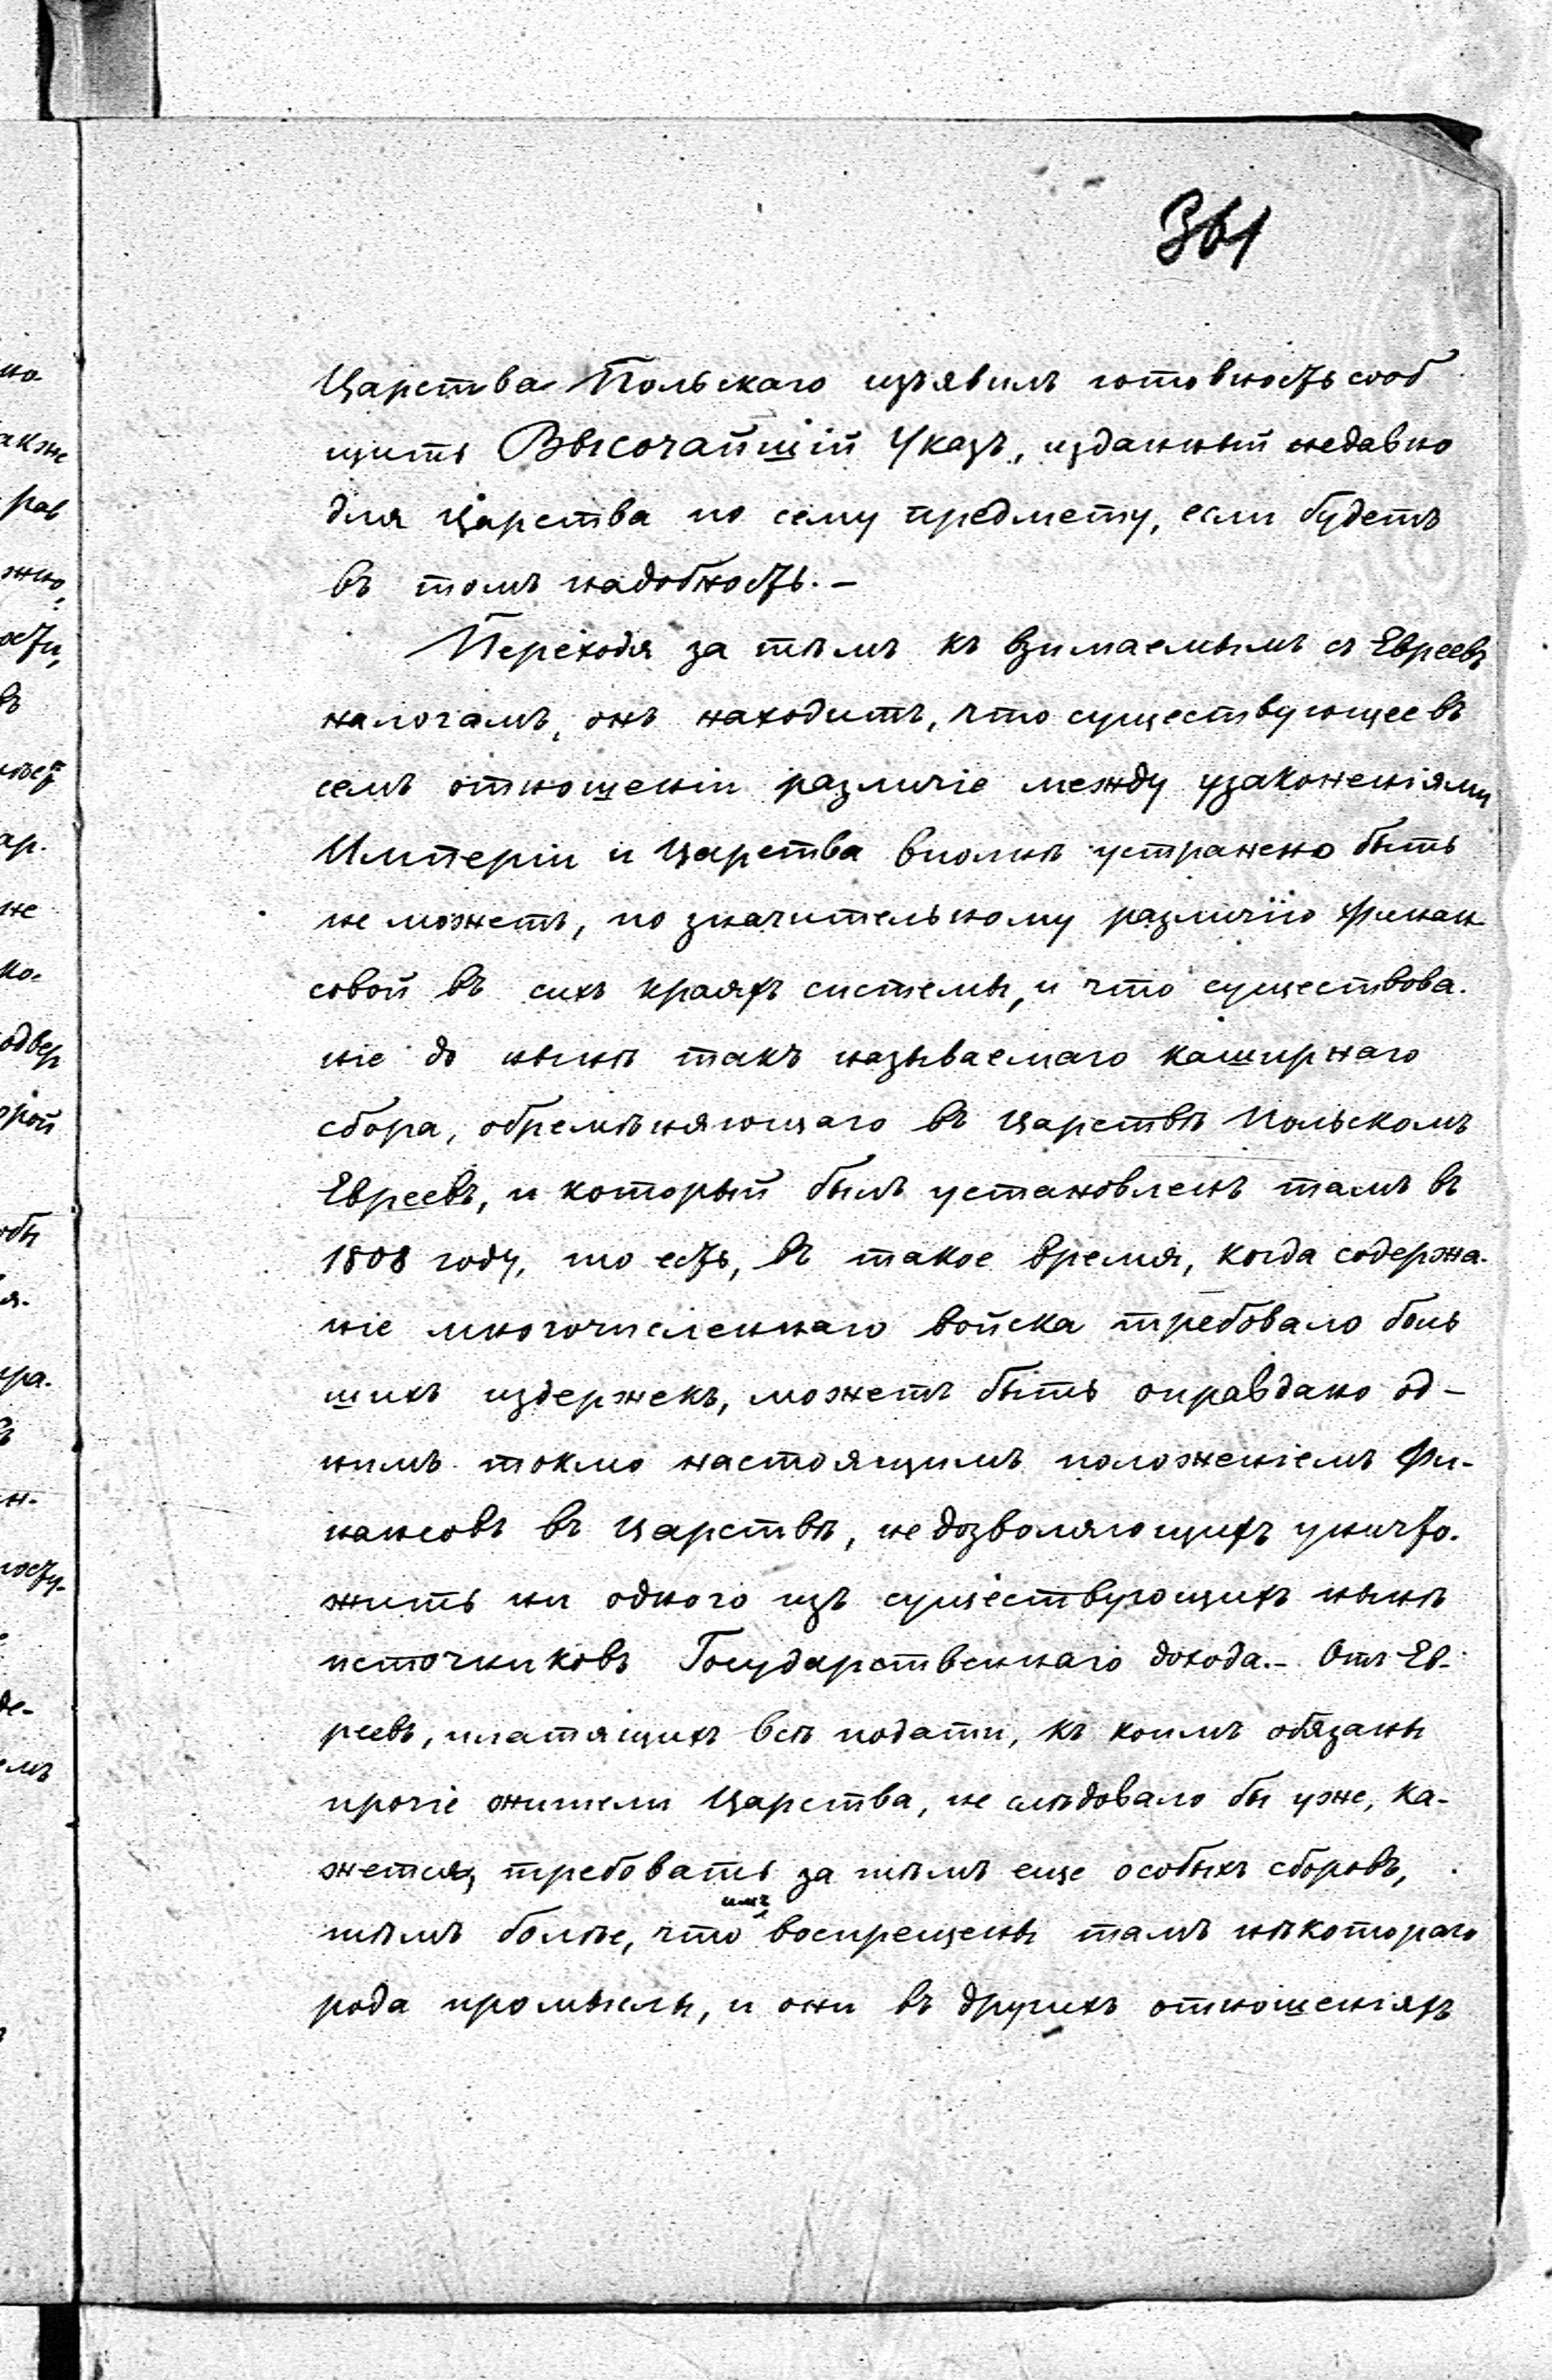 361
Царства Польскаго изъявилъ готовность сооб
щить Высочайшій Указъ, изданный недавно
для Царства по сему предмету, если будетъ
въ томъ надобность.-
Переходя за тѣмъ къ взимаемымъ съ Евреевъ
налогамъ, онъ находитъ, что существующее въ
семъ отношеніи различіе между узаконеніями
Имперіи и Царства вполнѣ устранено быть
не можетъ, по значительному различію финан
совой въ сихъ краяхъ системы, и что существова.
ніе до нынѣ такъ называемаго каширнаго
сбора, обремѣняющаго въ Царствѣ Польскомъ
Евреевъ, и который былъ установленъ тамъ въ
1808 году, то есть, въ такое время, когда содержа.
ніе многочисленнаго войска требовало боль
шихъ издержекъ, можетъ быть оправдано од-
нимъ токмо настоящимъ положеніемъ фи-
нансовъ въ Царствѣ, не дозволяющихъ уничто.
жить ни одного изъ существующихъ нынѣ
источниковъ Государственнаго дохода.- Отъ Ев-
реевъ, платящихъ всѣ подати, къ коимъ обязаны
прочіе жители Царства, не слѣдовало бы уже, ка-
жется, требовать за тѣмъ еще особыхъ сборовъ,
тѣмъ болѣе, что имъ воспрещены тамъ нѣкотораго
рода промыслы, и они въ другихъ отношеніяхъ